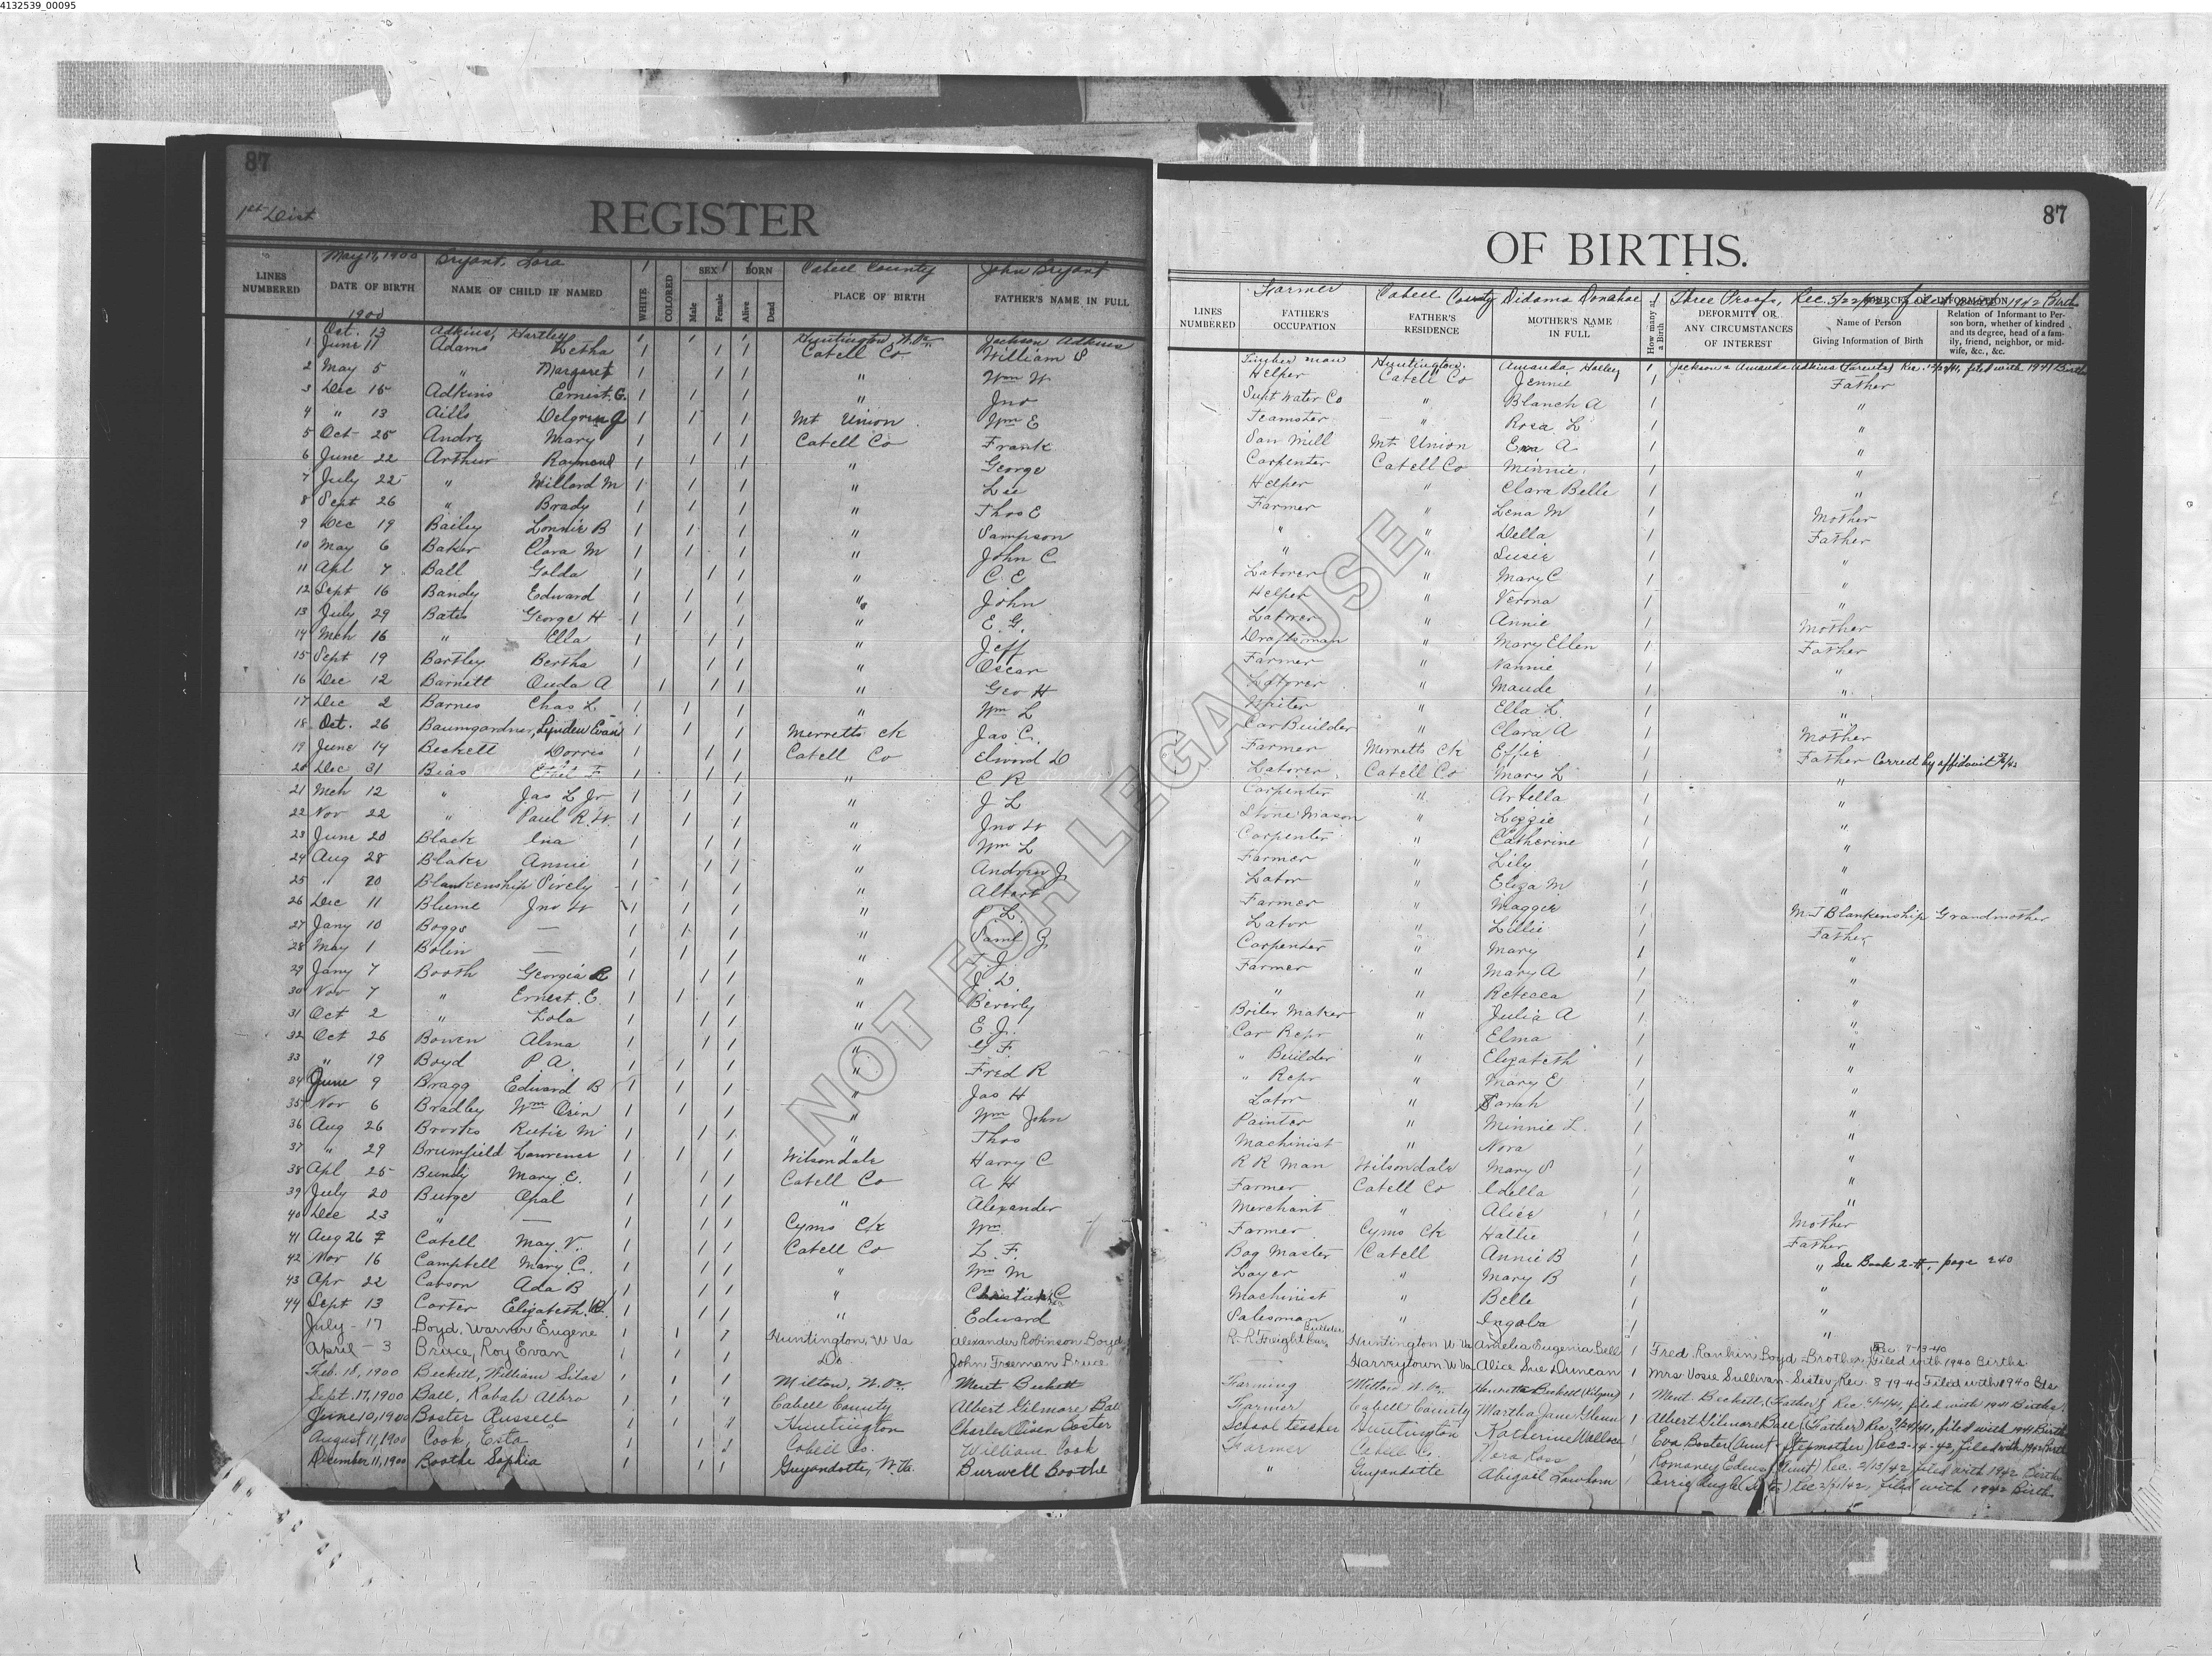 4132539_00095
87
1st Dist
REGISTER
May 17, 1900 Bryant, Lora 1 1 Cabell County John Bryant
LINES NUMBERED DATE OF BIRTH NAME OF CHILD IF NAMED WHITE COLORED SEX Male Female BORN Alive Dead PLACE OF BIRTH FATHER'S NAME IN FULL
1900
Oct. 13 Adkins, Hartley 1 1 1 Huntington, W. Va. Jackson Adkins
1 June 11 Adams Letha 1 1 1 Cabell Co William S
2 May 5 " Margaret 1 1 1 " Wm W
3 Dec 15 Adkins Ernest G. 1 1 1 " Jno
4 " 13 Aills 1 1 1 Mt Union Wm E
5 Oct 25 Andre Mary 1 1 1 Cabell Co Frank
6 June 22 Arthur Raymond 1 1 1 " George
7 July 22 " Willard M 1 1 1 " Lee
8 Sept 26 " Brady 1 1 1 " Thos E
9 Dec 19 Bailey Lonnie B 1 1 1 " Sampson
10 May 6 Baker Clara M 1 1 1 " John C
11 Apl 7 Ball Golda 1 1 1 " C. E
12 Sept 16 Bandy Edward 1 1 1 " John
13 July 29 Bates George H 1 1 1 " E. G.
14 Mch 16 " Ella 1 1 1 " Jeff
15 Sept 19 Bartley Bertha 1 1 1 " Oscar
16 Dec 12 Barnett Ouda A 1 1 1 " Geo H
17 Dec 2 Barnes Chas L 1 1 1 " Wm L
18 Oct. 26 Baumgardner, Lynden Evan 1 1 1 Merretts Ck Jas C.
19 June 14 Beckett Dorris 1 1 1 Cabell Co Elwood D
20 Dec 31 Bias 1 1 1 " C R
21 Mch 12 " Jas L Jr 1 1 1 " J L
22 Nov 22 " Paul R. W. 1 1 1 " Jno W
23 June 20 Black Ina 1 1 1 " Wm L
24 Aug 28 Blake Annie 1 1 1 " Andrew J.
25 " 20 Blankenship Pirely 1 1 1 " Albert
26 Dec 11 Blume Jno W 1 1 1 " P. L.
27 Jany 10 Boggs — 1 1 1 " Saml G.
28 May 1 Bolin — 1 1 1 " T. J.
29 Jany 7 Booth Georgia R 1 1 1 " J. D.
30 Nov 7 " Ernest. E. 1 1 1 " Beverly
31 Oct 2 " Lola 1 1 1 " E. J.
32 Oct 26 Bowen Alma 1 1 1 " G F.
33 " 19 Boyd P. A. 1 1 1 " Fred R
34 June 9 Bragg Edward B 1 1 1 " Jas H
35 Nov 6 Bradley Wm Orin 1 1 1 " Wm John
36 Aug 26 Brooks Rutie M 1 1 1 " Thos
37 " 29 Brumfield Lawrence 1 1 1 Wilsondale Harry C
38 Apl 25 Bundy Mary. E. 1 1 1 Cabell Co A H
39 July 20 Burge Opal 1 1 1 " Alexander
40 Dec 23 " — 1 1 1 Cyrus Ck Wm
41 Aug 26 Cabell May V. 1 1 1 Cabell Co L. F.
42 Nov 16 Campbell Mary C. 1 1 1 " Wm M
43 Apr 22 Carson Ada B 1 1 1 "
44 Sept 13 Carter Elizabeth 1 1 1 " Edward
July - 17 Boyd, Warner Eugene 1 1 1 Huntington, W Va Alexander Robinson Boyd
April - 3 Bruce, Roy Evan 1 1 1 Do John Freeman Bruce
Feb. 18, 1900 Beckett, William Silas 1 1 1 Milton, W. Va. Ment Beckett
Sept. 17, 1900 Ball, Rabah Albro 1 1 1 Cabell County Albert Gilmore Ball
June 10, 1900 Boster Russell 1 1 1 Huntington Charles Owen Boster
August 11, 1900 Cook, Esta 1 1 1 Cabell Co. William Cook
December 11, 1900 Boothe Sophia 1 1 1 Guyandotte, W. Va. Burwell Boothe
87
OF BIRTHS.
Farmer Cabell County Didama Donahoe 1 Three Proofs, Rec. 5/22/42 filed with 1942 Birth
LINES NUMBERED FATHER'S OCCUPATION FATHER'S RESIDENCE MOTHER'S NAME IN FULL How many at a Birth DEFORMITY OR ANY CIRCUMSTANCES OF INTEREST SOURCES OF INFORMATION Name of Person Giving Information of Birth Relation of Informant to Person born, whether of kindred and its degree, head of a family, friend, neighbor, or midwife, &c., &c.
Timber man Huntington. Amanda Holley 1 Jackson & Amanda Adkins (Parents) Rec. filed with 1941 Births
Helper Cabell Co Jennie 1 Father
Supt Water Co " Blanch A 1 "
Teamster " Rosa L 1 "
Saw Mill Mt Union Eva A 1 "
Carpenter Cabell Co Minnie 1 "
Helper " Clara Belle 1 "
Farmer " Lena M 1 Mother
" " Della 1 Father
" " Susie 1 "
Laborer " Mary C 1 "
Helper " Verona 1 "
Laborer " Annie 1 Mother
Draftsman " Mary Ellen 1 Father
Farmer " Nannie 1 "
Laborer " Maude 1 "
Waiter " Ella L. 1 "
Car Builder " Clara A 1 Mother
Farmer Merretts Ck Effie 1 Father Correct by affidavit
Laborer Cabell Co Mary L 1 "
Carpenter " Artella 1 "
Stone Mason " Lizzie 1 "
Carpenter " Catherine 1 "
Farmer " Lily 1 "
Labor " Eliza M 1 "
Farmer " Maggie 1 M J Blankenship Grandmother
Labor " Lillie 1 Father
Carpenter " Mary 1 "
Farmer " Mary A 1 "
" " Rebecca 1 "
Boiler Maker " Julia A 1 "
Car Repr " Elma 1 "
" Builder " Elizabeth 1 "
" Repr " Mary E 1 "
Labor " Sarah 1 "
Painter " Minnie L. 1 "
Machinist " Nora 1 "
R R Man Wilsondale Mary S 1 "
Farmer Cabell Co Idella 1 "
Merchant " Alice 1 Mother
Farmer Cyrus Ck Hattie 1 Father
Bag Master Cabell Annie B 1 " See Book 2-A, page 240
Layer " Mary B 1 "
Machinist " Belle 1 "
Salesman " Ingaba 1 "
R. R. Freight Car Builder Huntington W Va Amelia Eugenia Bell 1 Fred Rankin Boyd - Brother, Rec 7-13-40 Filed with 1940 Births
— Harveytown W Va Alice Sue Duncan 1 Mrs Vosie Sullivan - Sister, Rec. 8-19-40 Filed with 1940 Bts
Farming Milton W. Va. Henrietta Beckett (Kilgore) 1 Ment Beckett, (Father) Rec. filed with 1941 Births.
Farmer Cabell County Martha Jane Glenn 1 Albert Gilmore Ball (Father) Rec. filed with 1941 Birth
School teacher Huntington Katherine Wallace 1 Eva Boster (Aunt & Stepmother) Rec 2-14-42, filed with 1942 Birth
Farmer Cabell Co. Nora Ross 1 Romaney Edens (Aunt) Rec. 2/13/42 filed with 1942 Births
" Guyandotte Abigail Lawhorn 1 Carrie Angle Rec 2/21/42, filed with 1942 Births
NOT FOR LEGAL USE